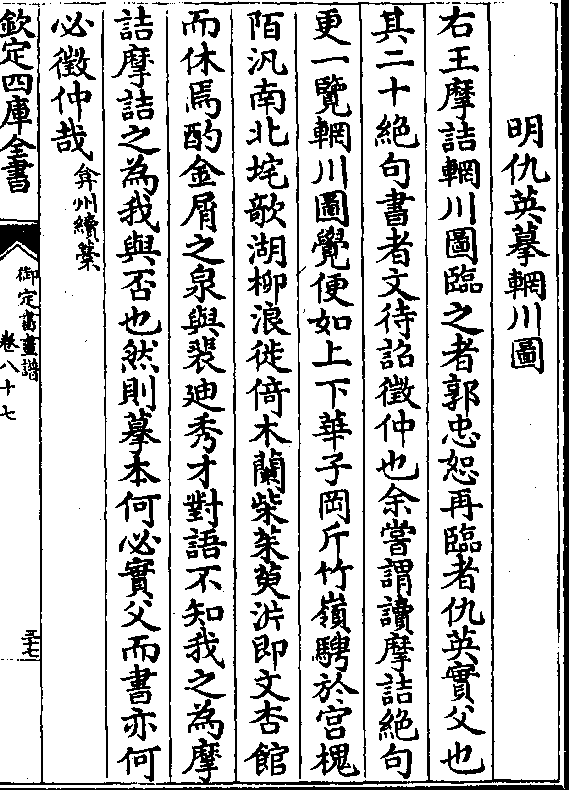 明仇英摹輞川圖
右王摩詰輞川圖臨之者郭忠恕再臨者仇英實父也
其二十絕句書者文待詔徵仲也余嘗謂讀摩詰絕句
更一覽輞川圖覺便如上下華子岡斤竹嶺騁於宮槐
陌汎南北垞欹湖柳浪徙倚木蘭柴茱萸沜即文杏館
而休焉酌金屑之泉與裴廸秀才對語不知我之為摩
詰摩詰之為我與否也然則摹本何必實父而書亦何
必徵仲哉弇州續藁
欽定四庫全書
御定書畫譜
卷八十七
三七